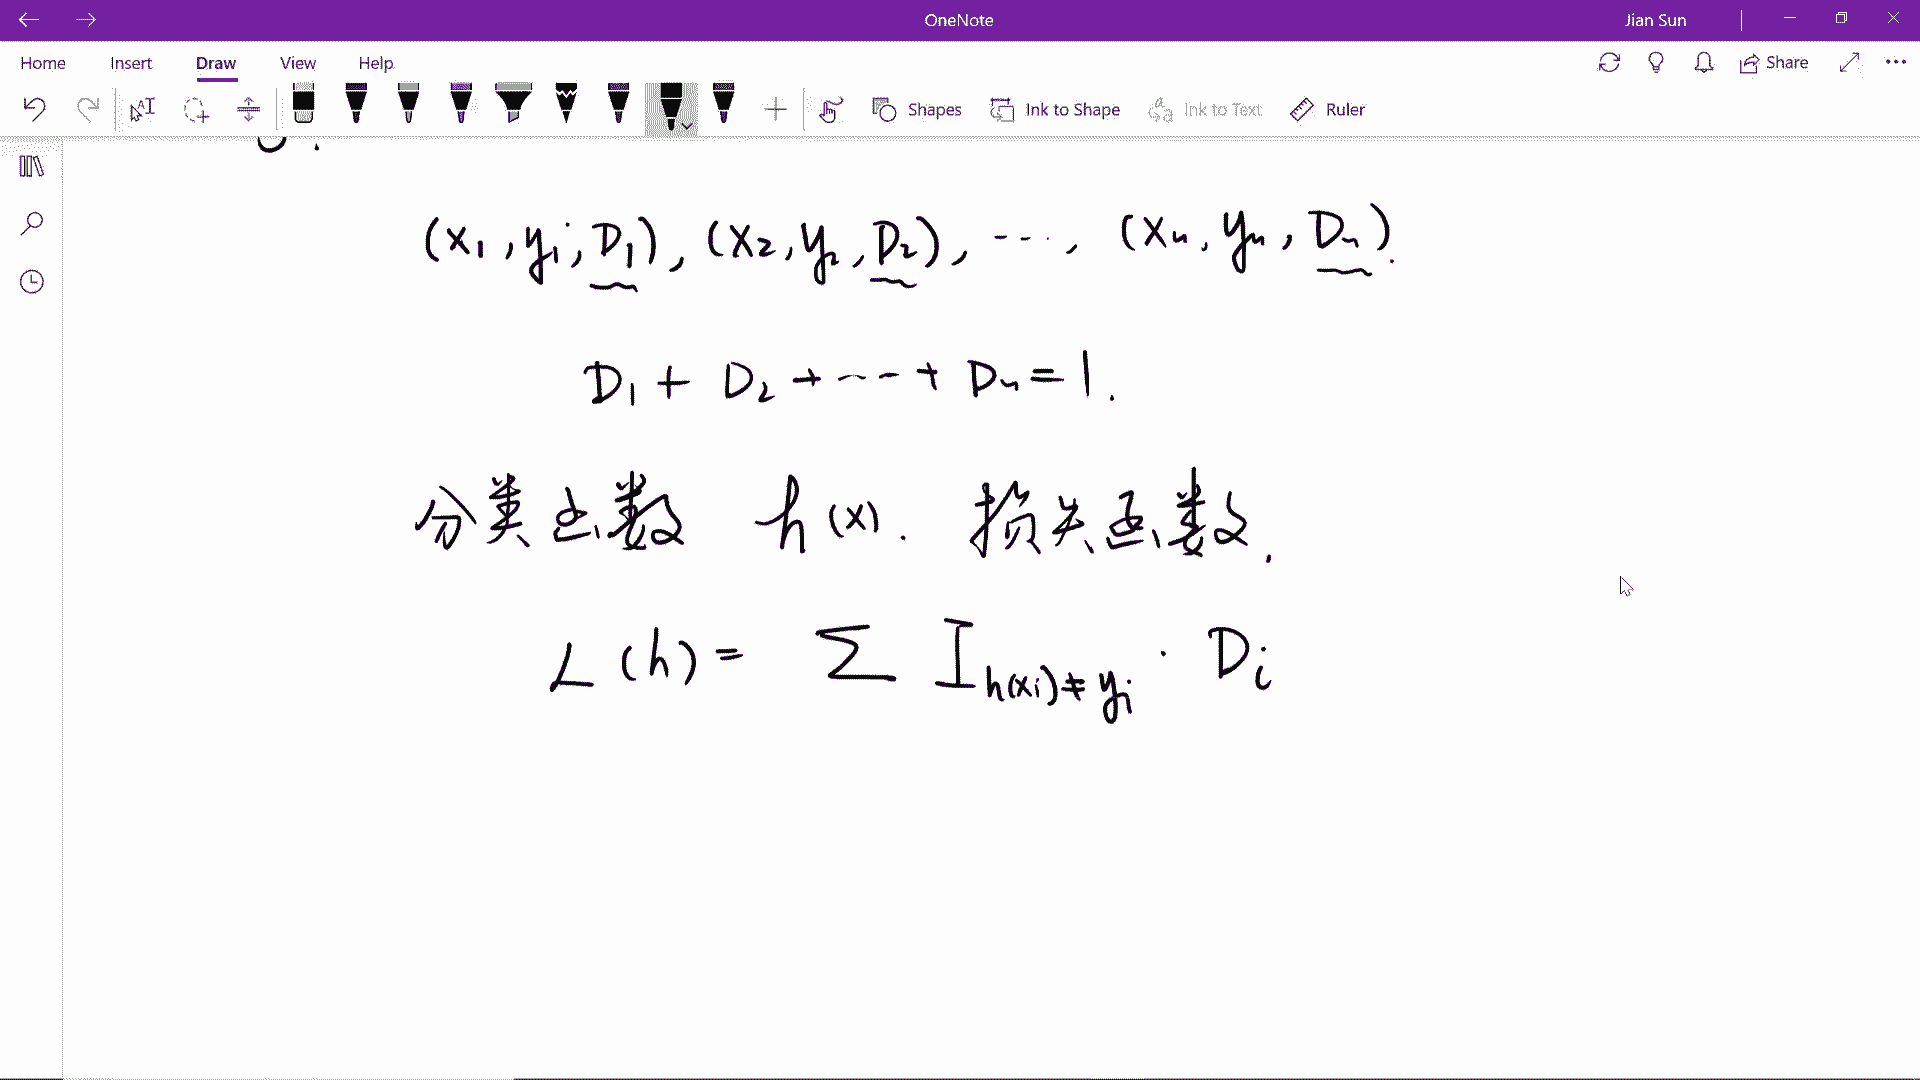 OneNote
Jian Sun
Home Insert Draw View Help
Share
Shapes Ink to Shape Ink to Text Ruler
(x₁, y₁, D₁), (x₂, y₂, D₂), ---, (xₙ, yₙ, Dₙ).
D₁ + D₂ + --- + Dₙ = 1.
分类函数 h(x). 损失函数.
L(h) = Σ I_{h(xᵢ)≠yᵢ} · Dᵢ